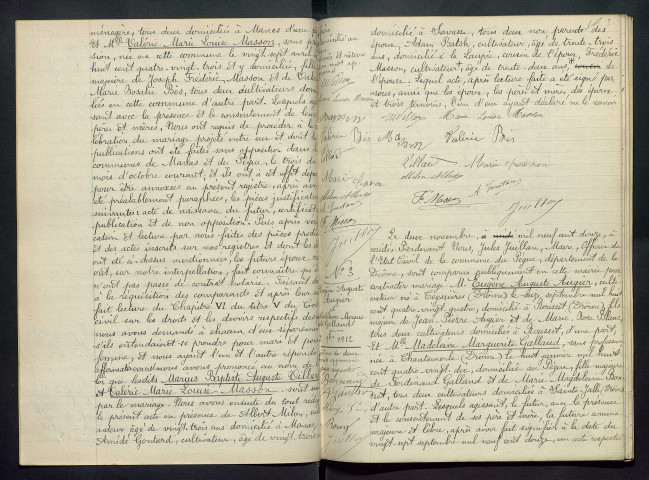 ménagère, tous deux domiciliés à Manas d'une part
Et Mlle Valérie Marie Louise Masson, sans profes-
sion, née en cette commune le vingt sept avril
huit cent quatre-vingt treize et y domiciliée, fille
majeure de Joseph Frédéric Masson et de
Marie Rosalie Bès, tous deux cultivateurs domici-
liés en cette commune d'autre part. Lesquels
sant avec la présence et le consentement de leurs
pères et mères, Nous ont requis de procéder à la
célébration du mariage projeté entre eux et dont les
publications ont été faites sans opposition dans les
communes de Manas et du Pègue, le treize du
mois d'octobre courant, et ils ont à cet effet déposé
pour être annexées au présent registre, après avoir
été préalablement paraphées, les pièces justificatives
suivantes : acte de naissance du futur, certificat de
publication et de non opposition. Puis après vérifi-
cation et lecture par nous faites des pièces produites
et des actes inscrits sur nos registres et dont les
ont dit ci-dessus mentionnées, les futurs époux
ont, sur notre interpellation, fait connaître qu'ils
n'ont pas passé de contrat notarié. Faisant droit
à la réquisition des comparants et après leur avoir
fait lecture du Chapitre VI du titre V du Code
civil sur les droits et les devoirs respectifs des
nous avons demandé à chacun d'eux séparément
s'ils entendaient se prendre pour mari et pour
femme, et nous ayant l'un et l'autre répondu
affirmativement nous avons prononcé au nom de la
loi que lesdits Marius Baptiste Auguste
et Valérie Marie Louise Masson, sont unis
par le mariage. Nous avons ensuite du tout rédigé
le présent acte en présence de Albert Milon, culti-
vateur âgé de vingt-trois ans domicilié à Manas,
Amédé Gontard, cultivateur, âgé de vingt trois ans
domicilié à Savasse, tous deux non parents des
époux, Adam Batsh, cultivateur, âgé de trente trois
ans, domicilié à la Laupie, cousin de l'époux, Frédéric
Masson, cultivateur, âgé de trente deux ans,
l'épouse. Lequel acte, après lecture faite a été signé par
nous, ainsi que les époux, les père et mère, des époux
et trois témoins, l'un d'eux ayant déclaré ne le savoir
Marie Louise Masson
Valérie Bès
Marie
Milon Albert
A Gontard
F. Masson
No 3
Auguste
Augier
Galland
1912
Le deux novembre, mil neuf cent douze, à
midi, Pardevant Nous, Jules Juillan, Maire, Officier de
l'Etat Civil de la commune du Pègue, département de la
Drôme, sont comparus publiquement en cette mairie pour
contracter mariage M. Eugène Auguste Augier, culti-
vateur né à Teyssières (Drôme) le onze septembre mil huit
cent quatre vingt quatre, domicilié à Rousset (Drôme), fils
majeur de Jean Pierre Augier et de Marie Rose
tous deux cultivateurs domiciliés à Rousset, d'une part,
Et Mlle Madeleine Marguerite Galland, sans profession
née à Chantemerle (Drôme) le huit janvier mil huit
cent quatre vingt dix, domiciliée au Pègue, fille majeure
de Ferdinand Galland et de Marie Magdeleine
tous deux cultivateurs domiciliés à Sainte Jalle, Drôme,
d'autre part. Lesquels agissant, le futur, avec la présence
et le consentement de ses père et mère, la future comme
majeure et libre, après avoir fait signifié à la date du
vingt sept septembre mil neuf cent douze, un acte respectu